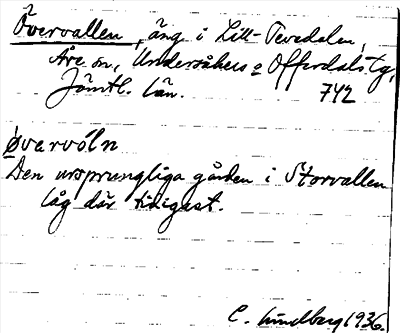 Övervallen, äng i Lill-Tevedalen,
Åre sn, Undersåkers o Offerdals tg,
Jämtl. län. 742
øvervóln
Den ursprungliga gården i Storvallen
låg där tidigast.
C. Lundberg 1936.